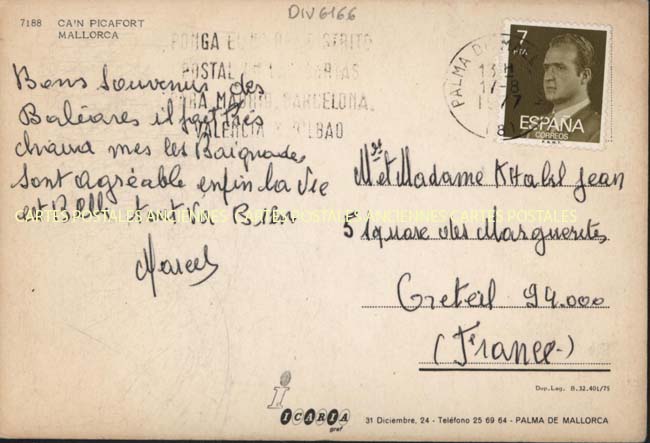 DIV6166
7188 CA'N PICAFORT
MALLORCA
PONGA EL DISTRITO
POSTAL EN CARTAS
PARA MADRID, BARCELONA,
VALENCIA Y BILBAO
PALMA DE
17-8
1977
7
PTA
ESPAÑA
CORREOS
Bons souvenirs des
Baléares il fait très
chaud mes les Baignades
sont agréable enfin la Vie
est Belle tout va Bien
Marcel
CARTES POSTALES ANCIENNES CARTES POSTALES ANCIENNES CARTES POSTALES
Mr et Madame Khalil Jean
5 Square des Marguerites
Creteil 94.000
(France)
Dep. Leg. B. 32.401/75
ICARIA
graf
31 Diciembre, 24 - Teléfono 25 69 64 - PALMA DE MALLORCA